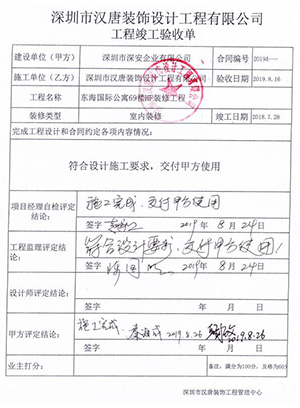 深圳市汉唐装饰设计工程有限公司
工程竣工验收单
建设单位（甲方） 深圳市深安企业有限公司 合同编号 2019A—
施工单位（乙方） 深圳市汉唐装饰设计工程有限公司 验收日期 2019.8.16
工程名称 东海国际公寓69楼HF装修工程
装修类型 室内装修 竣工日期 2018.7.28
完成工程设计和合同约定各项内容情况:
符合设计施工要求，交付甲方使用
项目经理自检评定结论: 施工完成、交付甲方使用
签字 2019年8月24日
工程监理评定结论: 符合设计要求，交付甲方使用！
签字 2019年8月24日
设计师评定结论:
签字 年 月 日
甲方评定结论: 施工完成 2019.8.26 2019.8.26
签字 年 月 日
业主打分: 备注: 满分为100分，及格为60
深圳市汉唐装饰工程管理中心